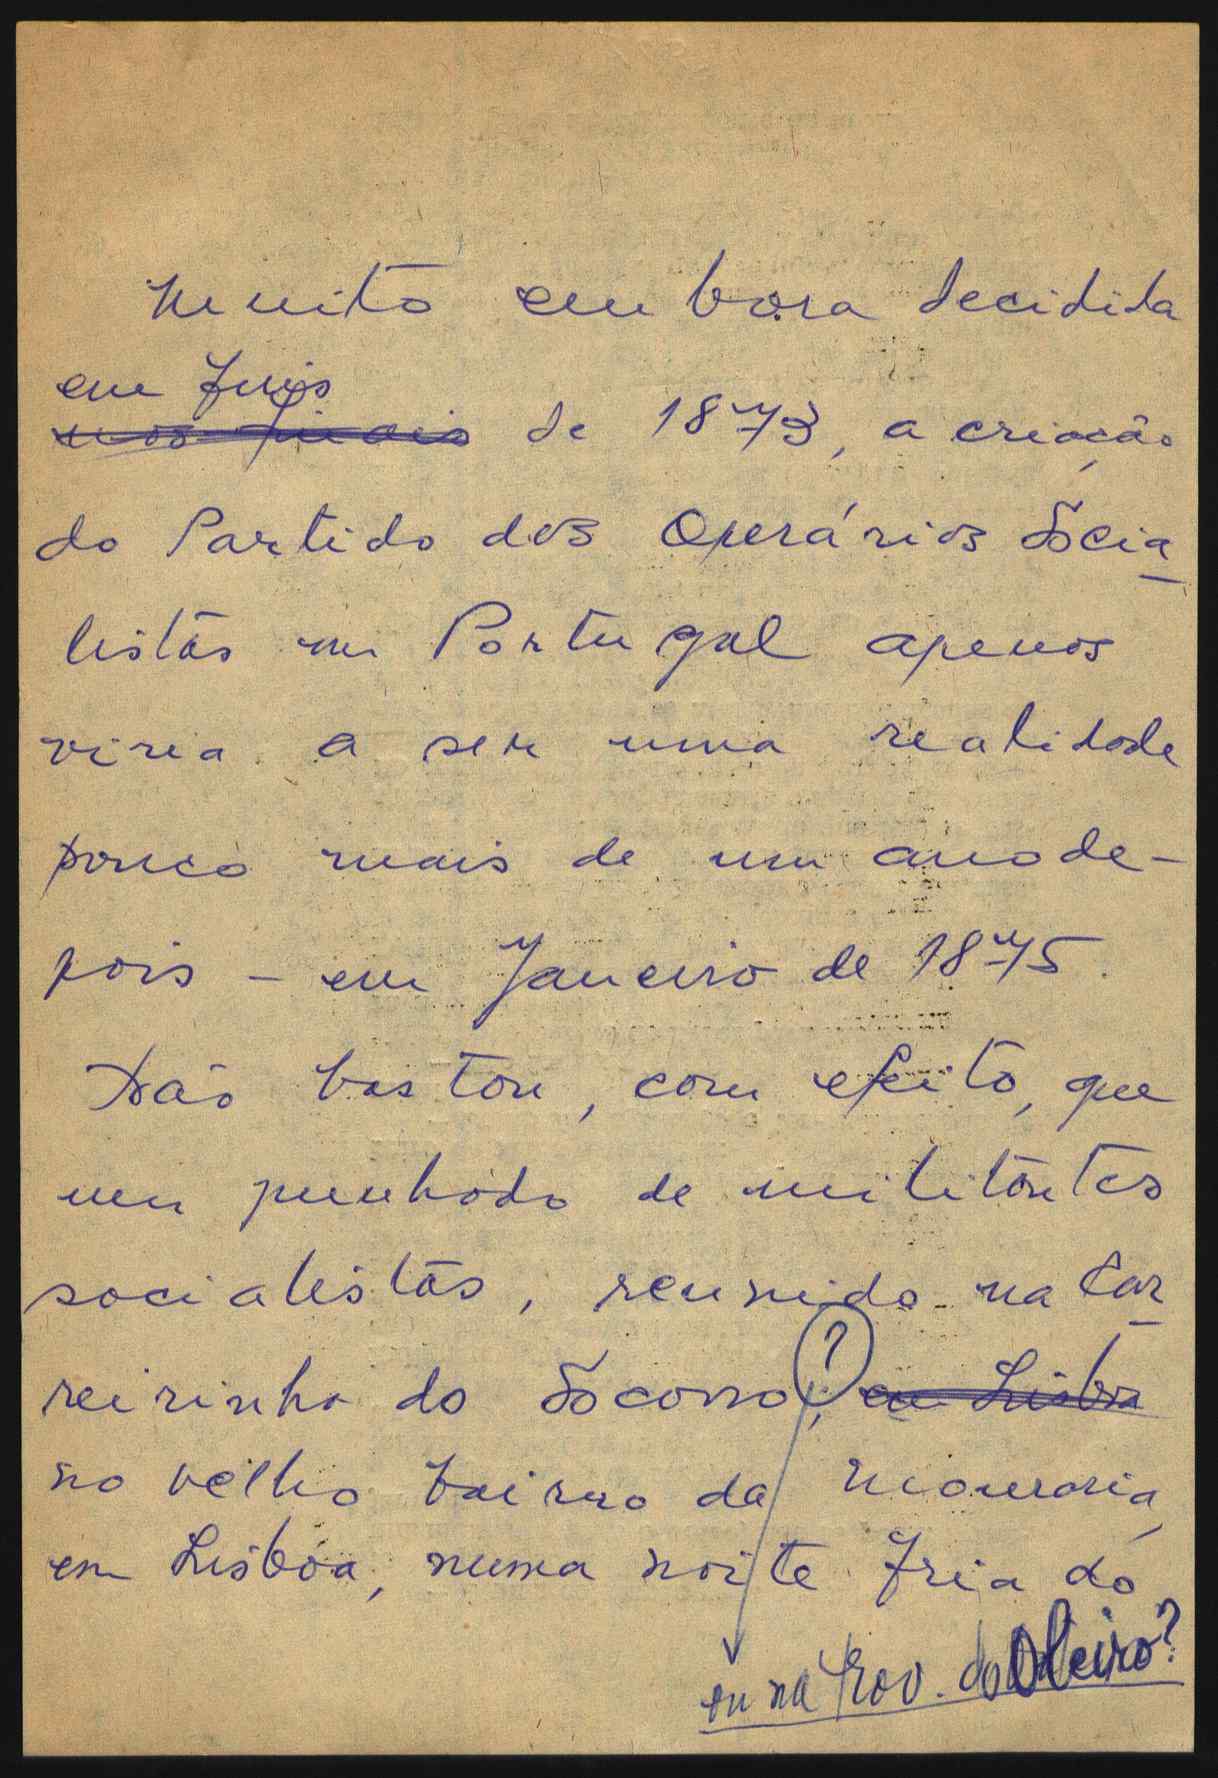 Muito embora decidida
em fins
nos finais de 1873, a criação
do Partido dos Operários Socia
listas em Portugal apenas
viria a ser uma realidade
pouco mais de um ano de-
pois - em Janeiro de 1875.
Não bastou, com efeito, que
um punhado de militantes
socialistas, reunido na Car
reirinha do Socorro, em Lisboa
?
no velho bairro da Mouraria,
em Lisboa, numa noite fria do
ou na Trav. do Oleiro?